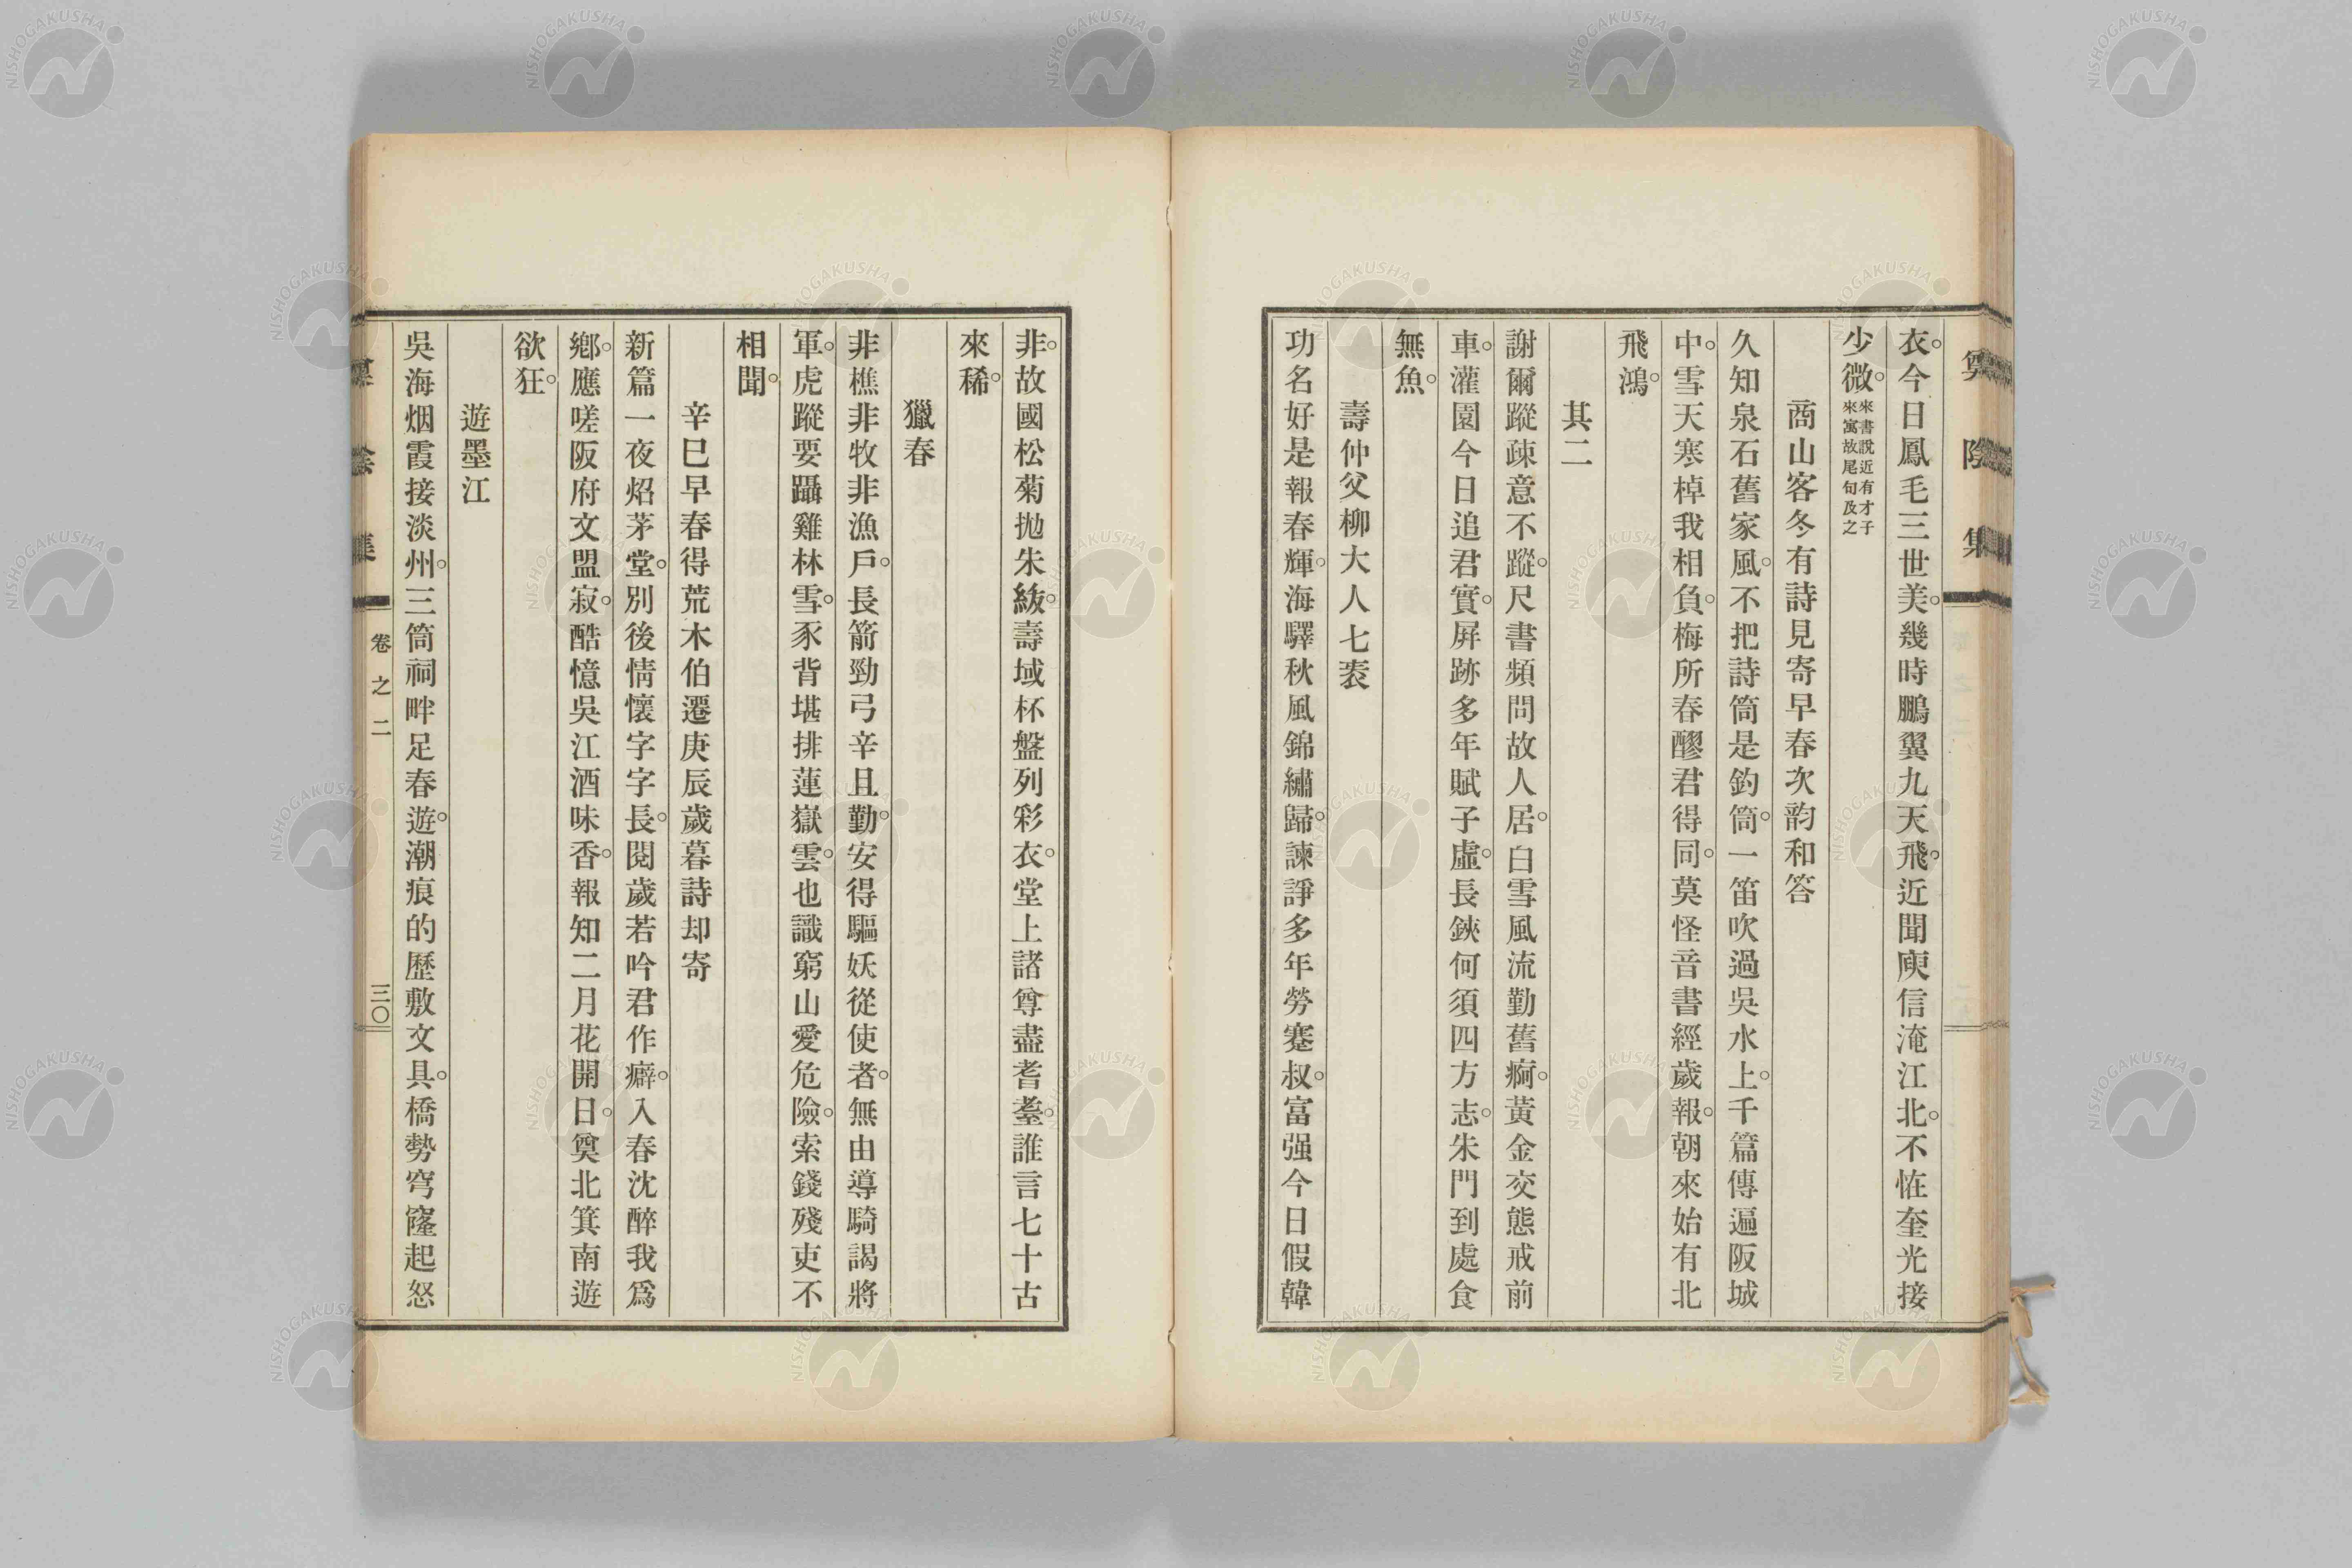 衣。今日鳳毛三世美。幾時鵬翼九天飛。近聞庾信淹江北。不恠奎光接
少微。來書說近有才子
來寓故尾句及之
商山客冬有詩見寄早春次韵和答
久知泉石舊家風。不把詩筒是釣筒。一笛吹過吳水上。千篇傳遍阪城
中。雪天寒棹我相負。梅所春醪君得同。莫怪音書經歲報。朝來始有北
飛鴻。
其二
謝爾蹤疎意不蹤。尺書頻問故人居。白雪風流勤舊痾。黃金交態戒前
車。灌園今日追君實。屏跡多年賦子虛。長鋏何須四方志。朱門到處食
無魚。
壽仲父柳大人七袠
功名好是報春輝。海驛秋風錦繡歸。諫諍多年勞蹇叔。富强今日假韓
非。故國松菊抛朱紱。壽域杯盤列彩衣。堂上諸尊盡耆耋。誰言七十古
來稀。
獵春
非樵非牧非漁戶。長箭勁弓辛且勤。安得驅妖從使者。無由導騎謁將
軍。虎蹤要躡雞林雪。豕背堪排蓮嶽雲。也識窮山愛危險。索錢殘吏不
相聞。
辛巳早春得荒木伯遷庚辰歲暮詩却寄
新篇一夜炤茅堂。別後情懷字字長。閱歲若吟君作癖。入春沈醉我爲
鄉。應嗟阪府文盟寂。酷憶吳江酒味香。報知二月花開日。奠北箕南遊
欲狂。
遊墨江
吳海烟霞接淡州。三筒祠畔足春遊。潮痕的歷敷文具。橋勢穹窿起怒
卷之二
三〇